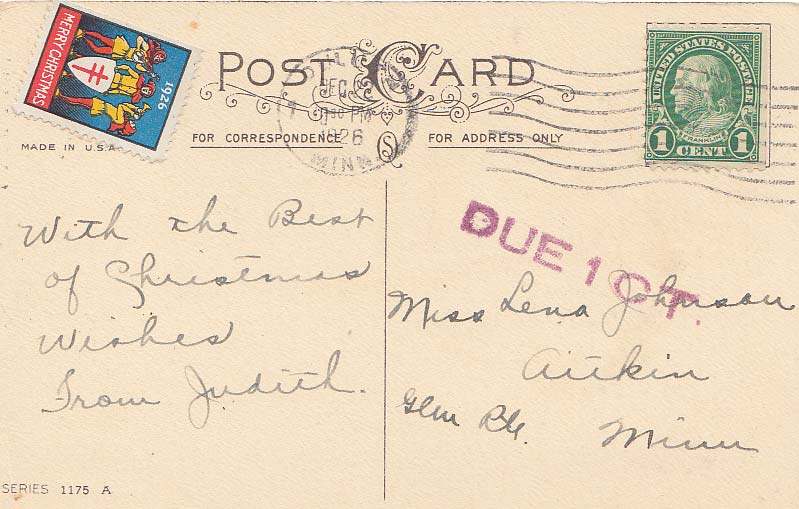 MERRY CHRISTMAS
1926
POST CARD
DEC
1926
MINN
UNITED STATES POSTAGE
FRANKLIN
1 CENT 1
MADE IN U.S.A.
FOR CORRESPONDENCE
FOR ADDRESS ONLY
With the Best
of Christmas
Wishes
From Judith.
DUE 1 CT.
Miss Lena Johnson
Aitkin
Glen Rte.
Minn
SERIES 1175 A